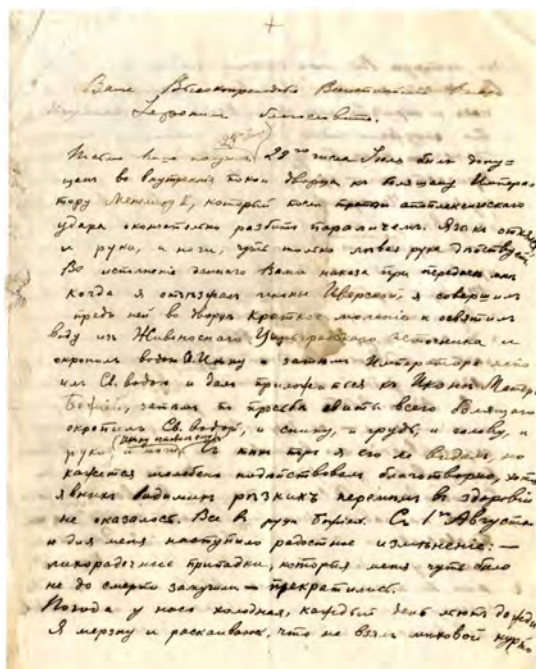 Ваше Высокопреподобіе
благословите.
29го числа Іюля былъ допу-
щенъ во внутренніе покои дворца къ болящему Импера-
тору Менелику, который послѣ третьяго апоплексическаго
удара окончательно разбитъ параличемъ. Языкъ
и руки, и ноги, чуть только лѣвая рука дѣйствуетъ.
Во исполненіе даннаго Вами наказа при передачѣ мнѣ
когда я отъѣзжалъ иконы Иверской, я совершилъ
предъ ней во дворцѣ краткое моленіе и освятилъ
воду изъ Живоноснаго Цареградскаго источника и
окропилъ водой и затѣмъ Императора
илъ Св. водой и далъ приложиться къ Иконѣ Матери
Божіей, затѣмъ по просьбѣ свиты всего болящаго
окропилъ Св. водой, и спину, и грудь, и голову, и
руки, и ноги съ тѣхъ поръ я его не видалъ, но
кажется молебенъ подѣйствовалъ благотворно, хотя
явныхъ видимыхъ рѣзкихъ перемѣнъ въ здоровіи
не оказалось. Все въ руцѣ Божіей. Съ 1го Августа
и для меня наступило радостное измѣненіе: —
лихорадочные припадки, которые меня чуть было
не до смерти замучили — прекратились.
Погода у насъ холодная, каждый день льютъ дожди
Я мерзну и раскаиваюсь, что не взялъ мѣховой куртки